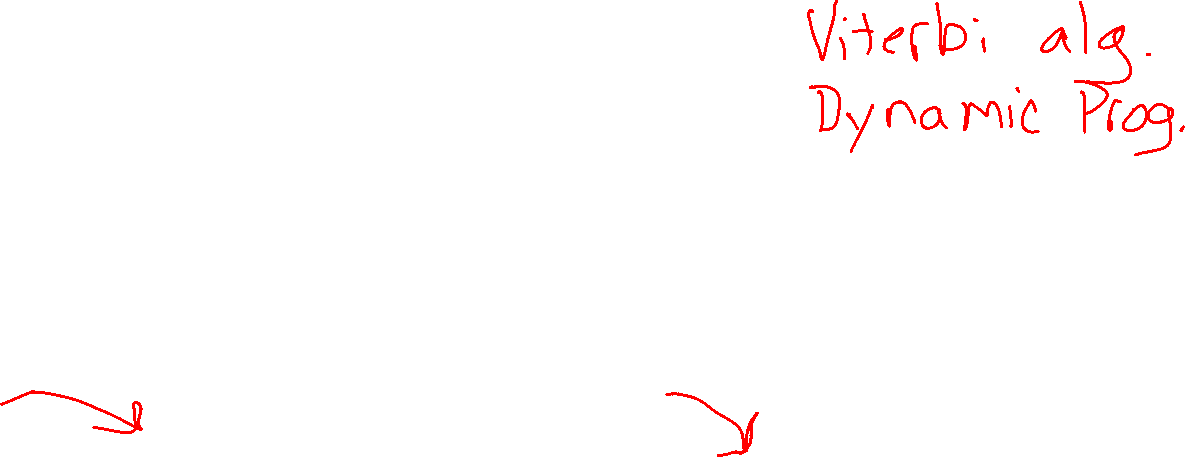 Viterbi alg.
Dynamic Prog.